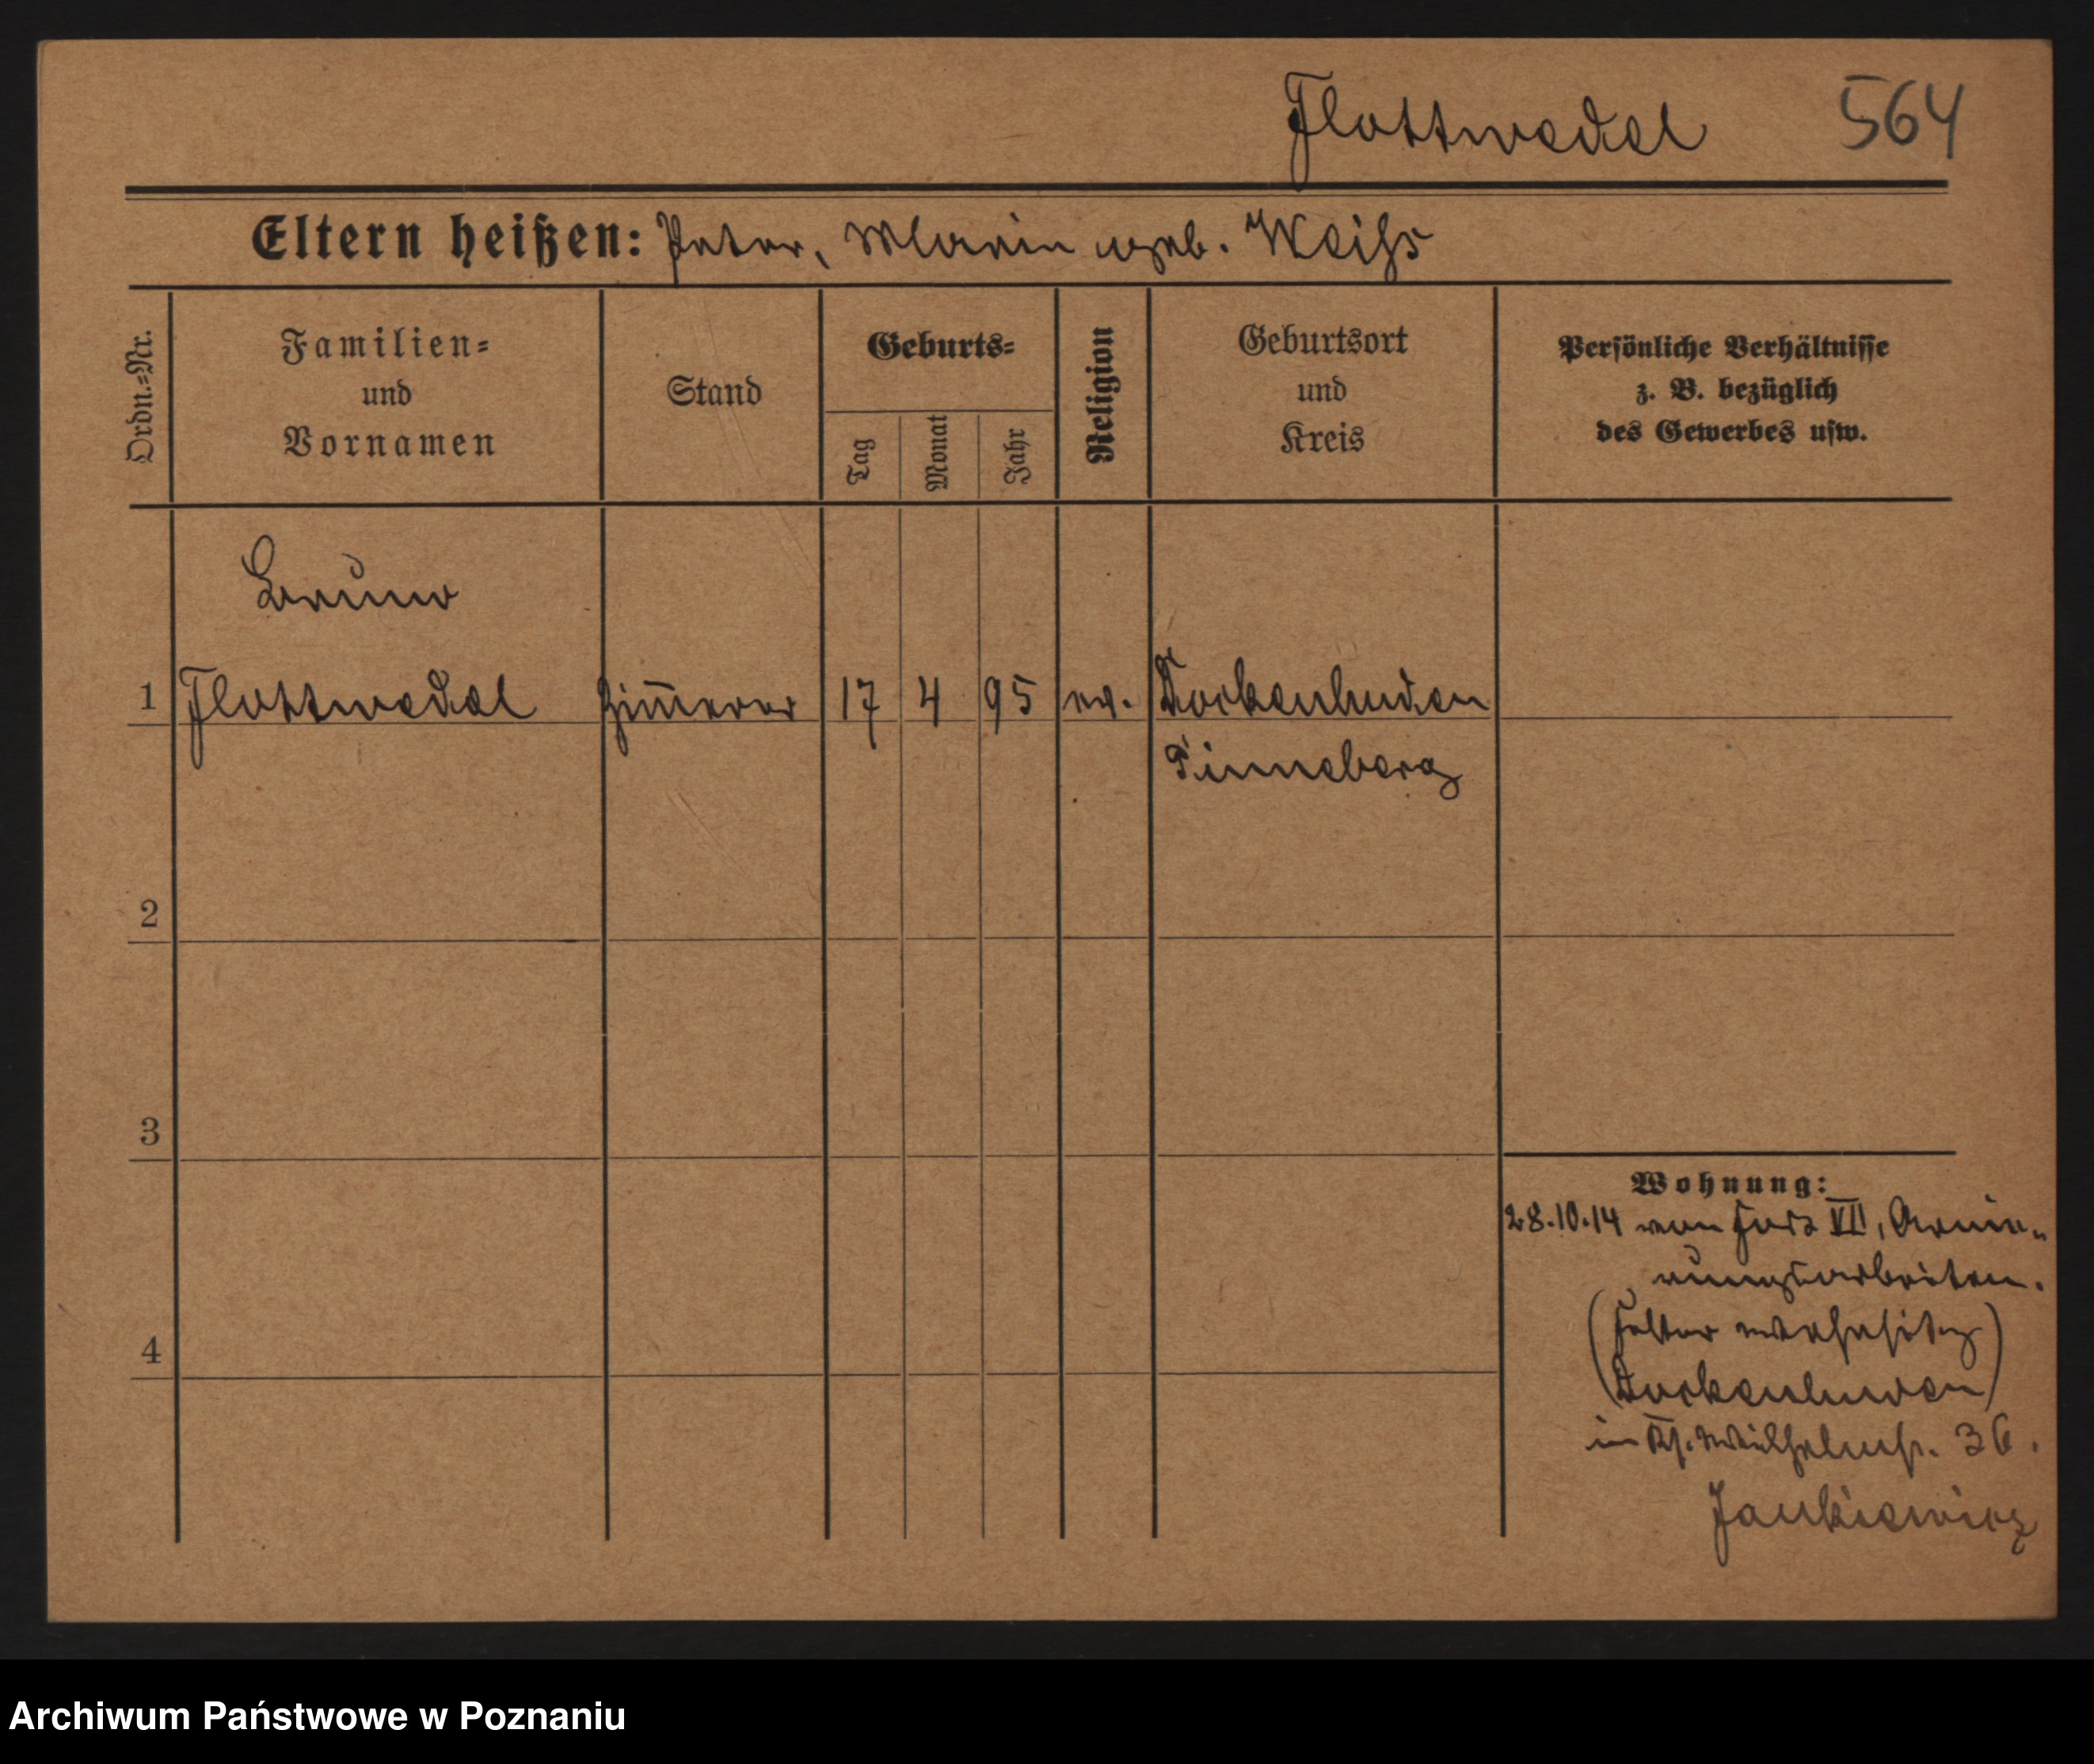 Flottwedel 564
Eltern heißen: Peter, Marie geb. Weihs
Ordn.=Nr.
Familien=
und
Vornamen
Stand
Geburts=
Tag
Monat
Jahr
Religion
Geburtsort
und
Kreis
Persönliche Verhältnisse
z. B. bezüglich
des Gewerbes usw.
Bruno
1 Flottwedel Zim̅erer 17 4 95 ev. Dockenhuden
Pinneberg
2
3
4
Wohnung:
28.10.14 von Fort VII, Armie-
rungsarbeiten.
Dockenhuden)
in Kr. Wilhelmstr. 36.
Jankiewicz
Archiwum Państwowe w Poznaniu